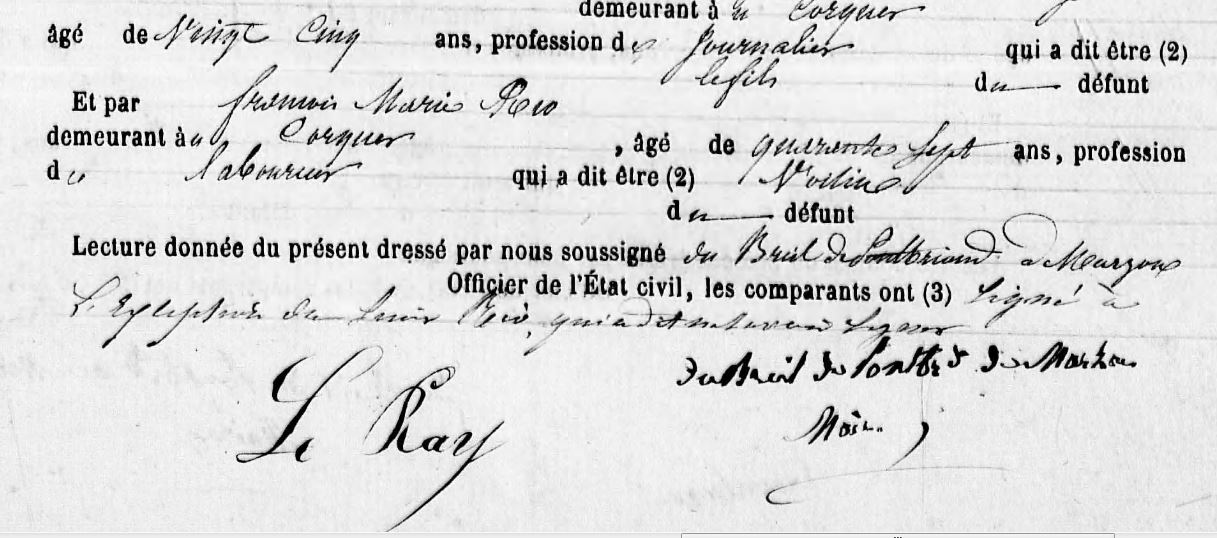 demeurant à Corguer
âgé de Vingt Cinq ans, profession de Journalier qui a dit être (2)
le fils du défunt
Et par François Marie Rio
demeurant à Corguer, âgé de quarante sept ans, profession
de laboureur qui a dit être (2) Voisin
du défunt
Lecture donnée du présent dressé par nous soussigné du Breil de Pontbriand de Marzan
Officier de l'État civil, les comparants ont (3) signé à
L'exception de Rio, qui a dit ne savoir signer
du Breil de Pontbrd de Marzan
Le Ray
Maire